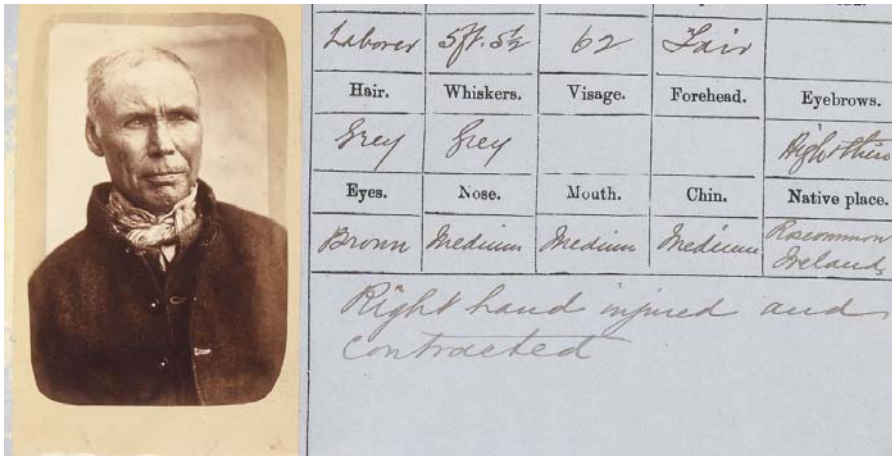 Laborer 5ft. 5½ 62 Fair
Hair. Whiskers. Visage. Forehead. Eyebrows.
Grey Grey High & thin
Eyes. Nose. Mouth. Chin. Native place.
Brown Medium Medium Medium Roscommon
Ireland
Right hand injured and
contracted